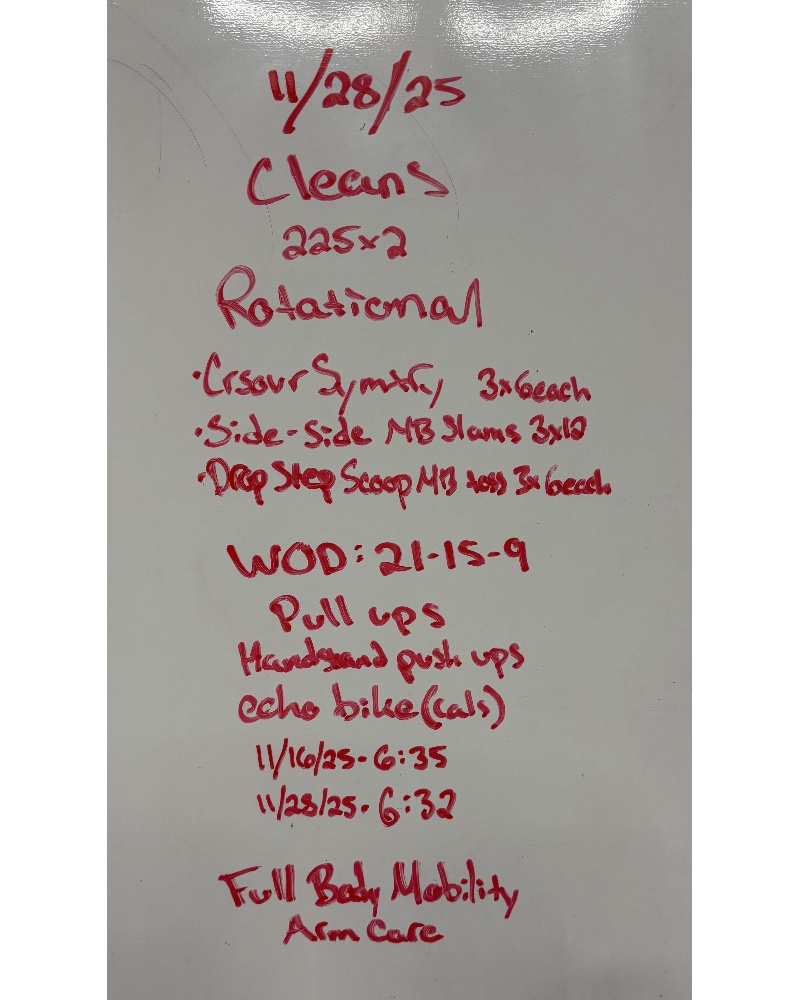 11/28/25
Cleans
225x2
Rotational
·Crsovr Symtry 3x6each
·Side-Side MB Slams 3x12
·Drop Step Scoop MB toss 3x6each
WOD: 21-15-9
Pull ups
Handstand push ups
echo bike (cals)
11/16/25- 6:35
11/28/25- 6:32
Full Body Mobility
Arm Care